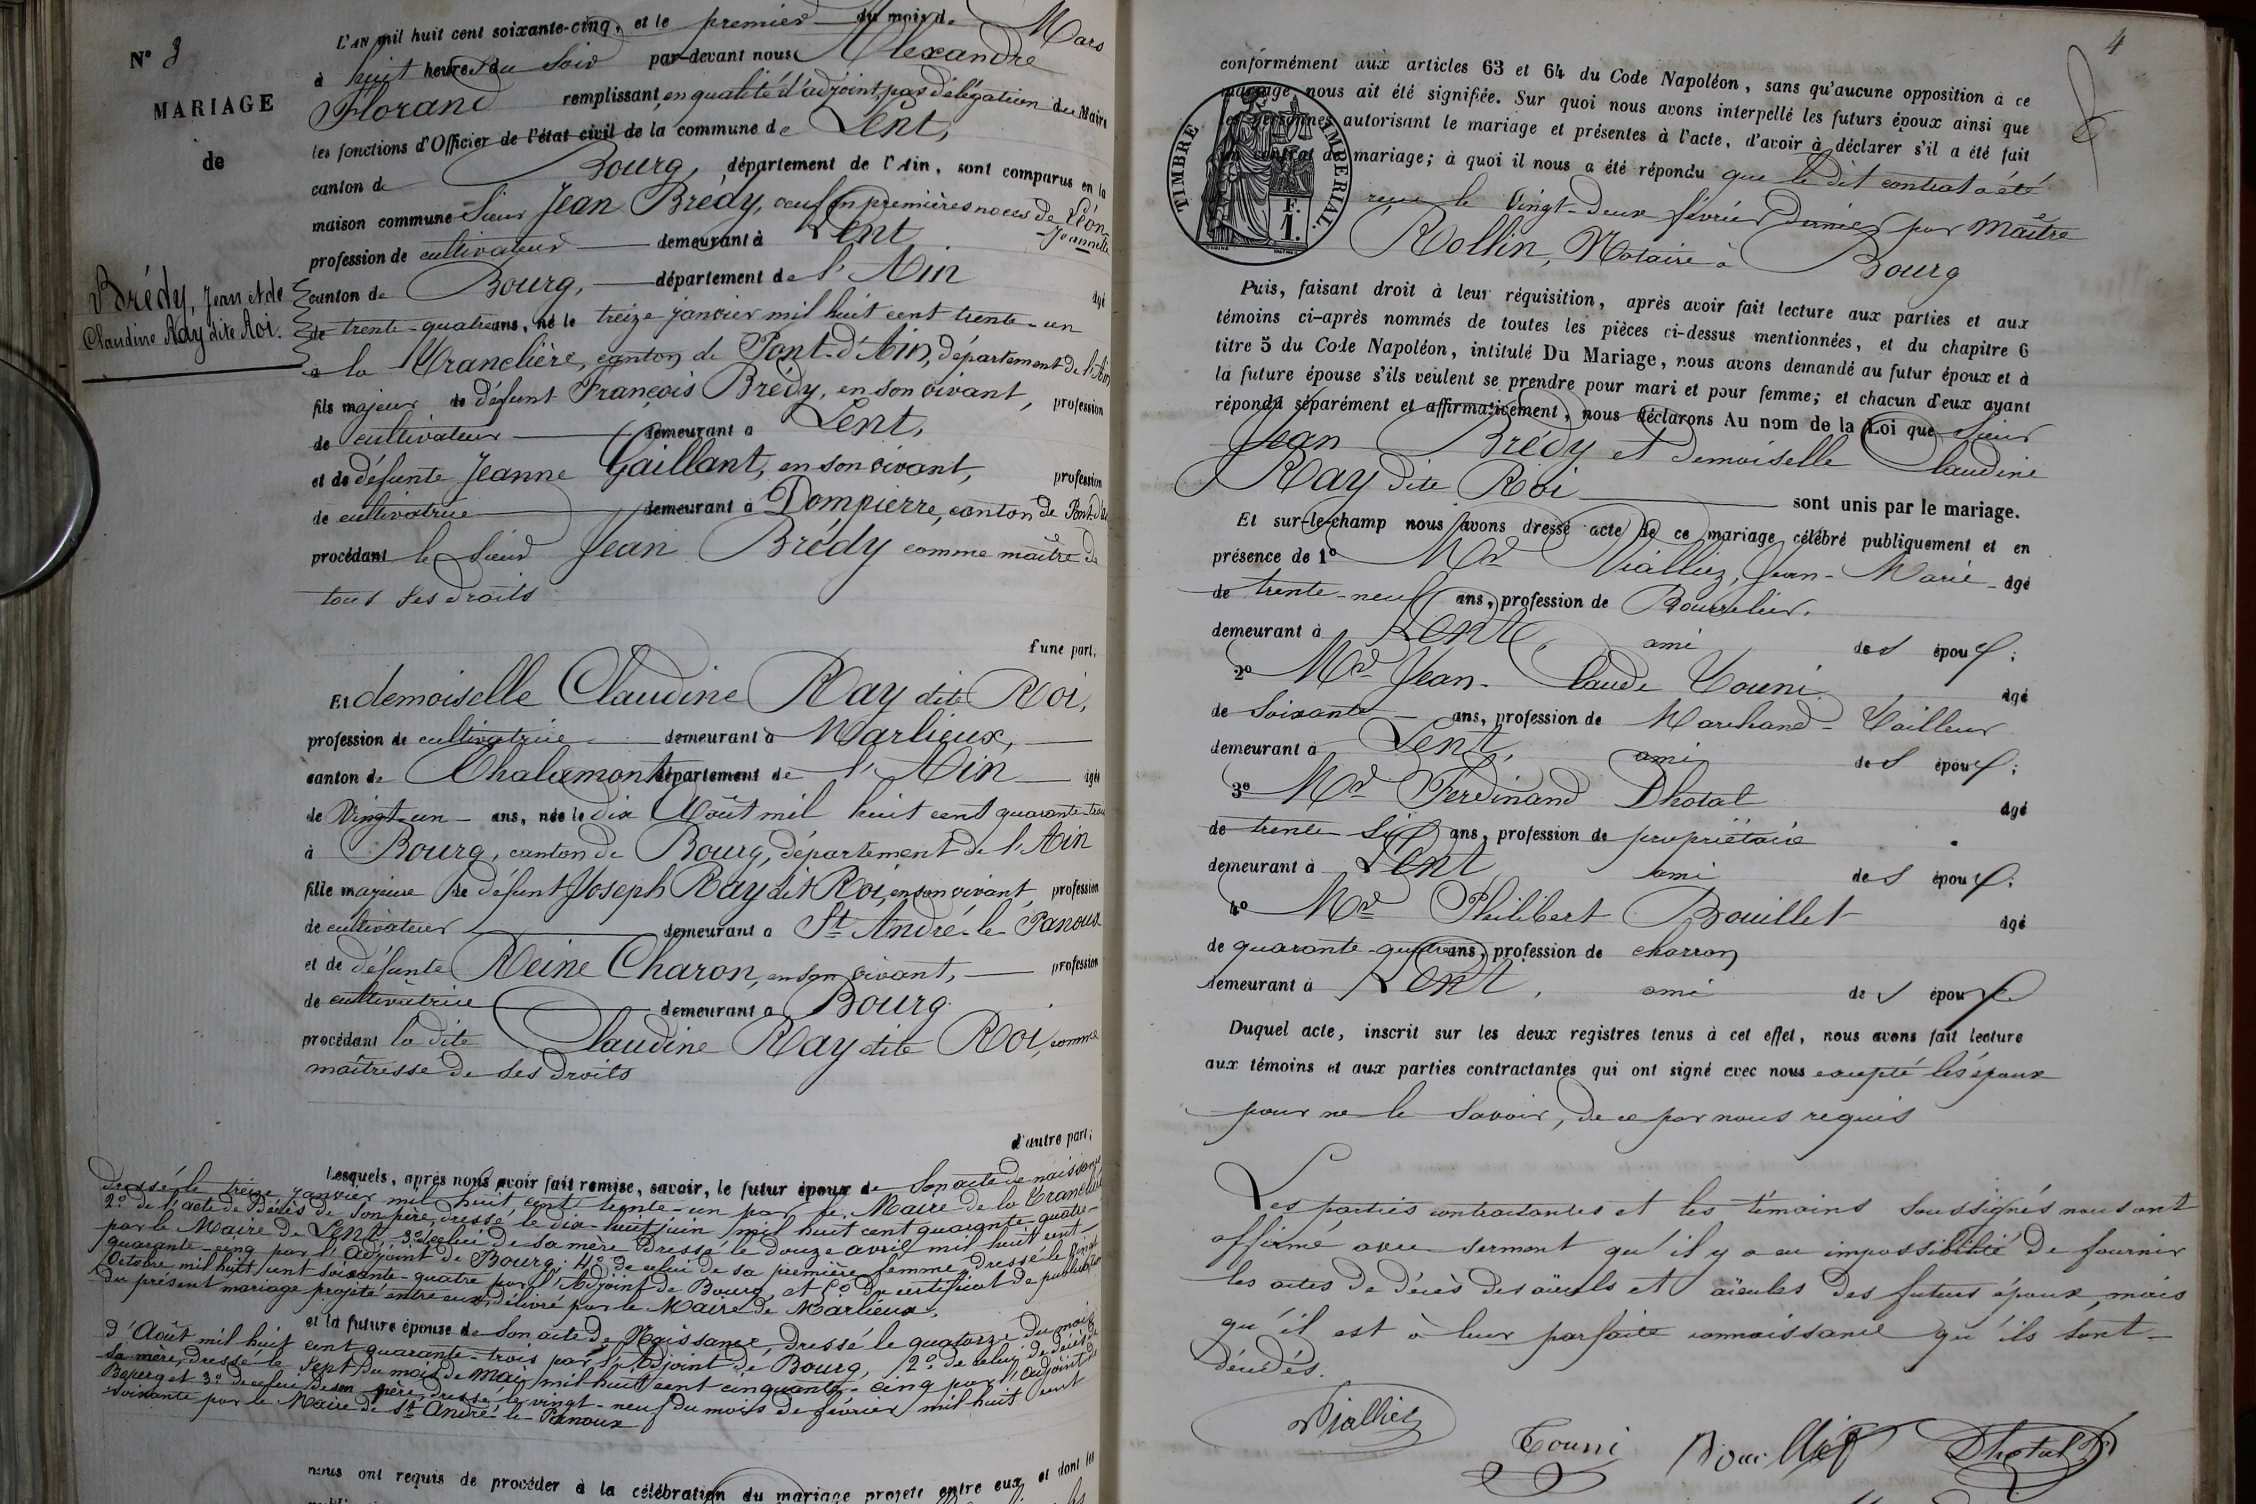 N° 3
MARIAGE
de
Brédy, Jean et de
Claudine Ray dite Roi.
L'AN mil huit cent soixante-cinq, et le premier du mois de Mars
à huit heures du soir par-devant nous Alexandre
Florand remplissant, en qualité d'adjoint, par délégation du Maire
les fonctions d'Officier de l'état civil de la commune de Lent,
canton de Bourg, département de l'Ain, sont comparus en la
maison commune Sieur Jean Brédy, veuf en premières noces de Léon Jeannette
profession de cultivateur demeurant à Lent
canton de Bourg, département de l'Ain âgé
de trente-quatre ans, né le treize janvier mil huit cent trente-un
à la Tranclière, canton de Pont-d'Ain, département de l'Ain
fils majeur de défunt François Brédy, en son vivant, profession
de cultivateur demeurant à Lent,
et de défunte Jeanne Gaillant, en son vivant, profession
de cultivatrice demeurant à Dompierre, canton de Pont-d'Ain
procédant le Sieur Jean Brédy comme maître de
tous ses droits
d'une part,
Et demoiselle Claudine Ray dite Roi,
profession de cultivatrice demeurant à Marlieux,
canton de Chalamont département de l'Ain âgée
de Vingt-un ans, née le dix Août mil huit cent quarante-trois
à Bourg, canton de Bourg, département de l'Ain
fille majeure de défunt Joseph Ray dit Roi, en son vivant, profession
de cultivateur demeurant à St André-le-Panoux
et de défunte Reine Charon, en son vivant, profession
de cultivatrice demeurant à Bourg
procédant la dite Claudine Ray dite Roi, comme
maîtresse de ses droits
d'autre part;
Lesquels, après nous avoir fait remise, savoir, le futur époux de son acte de naissance
dressé le treize janvier mil huit cent trente-un par le Maire de la Tranclière
2° de l'acte de Décès de son père, dressé le dix-huit juin mil huit cent quarante-quatre
par le Maire de Lent, 3° celui de sa mère dressé le douze avril mil huit cent
quarante-cinq par l'Adjoint de Bourg; 4° de celui de sa première femme dressé le vingt
Octobre mil huit cent soixante-quatre par l'Adjoint de Bourg, et 5° du certificat de publication
du présent mariage projeté entre eux, délivré par le Maire de Marlieux,
et la future épouse de son acte de Naissance, dressé le quatorze du mois
d'Août mil huit cent quarante-trois par l'Adjoint de Bourg, 2° de celui de décès de
sa mère, dressé le sept du mois de mai mil huit cent cinquante-cinq par l'adjoint de
Bourg et 3° de celui de son père, dressé le vingt-neuf du mois de février mil huit cent
soixante par le Maire de St André-le-Panoux
nous ont requis de procéder à la célébration du mariage projeté entre eux, et dont les
4
TIMBRE IMPERIAL.
F.
1.
conformément aux articles 63 et 64 du Code Napoléon, sans qu'aucune opposition à ce
mariage nous ait été signifiée. Sur quoi nous avons interpellé les futurs époux ainsi que
les personnes autorisant le mariage et présentes à l'acte, d'avoir à déclarer s'il a été fait
un contrat de mariage; à quoi il nous a été répondu que le dit contrat a été
reçu le Vingt-deux février dernier par Maître
Rollin, Notaire à Bourg
Puis, faisant droit à leur réquisition, après avoir fait lecture aux parties et aux
témoins ci-après nommés de toutes les pièces ci-dessus mentionnées, et du chapitre 6
titre 5 du Code Napoléon, intitulé Du Mariage, nous avons demandé au futur époux et à
la future épouse s'ils veulent se prendre pour mari et pour femme; et chacun d'eux ayant
répondu séparément et affirmativement, nous déclarons Au nom de la Loi que Sieur
Jean Brédy et demoiselle Claudine
Ray dite Roi sont unis par le mariage.
Et sur-le-champ nous avons dressé acte de ce mariage célébré publiquement et en
présence de 1° Mr Vialliez, Jean-Marie âgé
de trente-neuf ans, profession de Bourrelier,
demeurant à Lent, ami des époux;
2° Mr Jean-Claude Touni âgé
de Soixante ans, profession de Marchand-Tailleur
demeurant à Lent, ami des époux;
3° Mr Ferdinand Dhotal âgé
de trente six ans, profession de propriétaire
demeurant à Lent ami des époux;
4° Mr Philibert Bouillet âgé
de quarante-quatre ans, profession de charron
demeurant à Lent, ami des époux
Duquel acte, inscrit sur les deux registres tenus à cet effet, nous avons fait lecture
aux témoins et aux parties contractantes qui ont signé avec nous excepté les époux
pour ne le savoir, de ce par nous requis
Les parties contractantes et les témoins soussignés nous ont
affirmé avec serment qu'il y a eu impossibilité de fournir
les actes de décès des aïeuls et aïeules des futurs époux, mais
qu'il est à leur parfaite connaissance qu'ils sont
décédés.
Vialliez
Touni Bouillet Dhotal